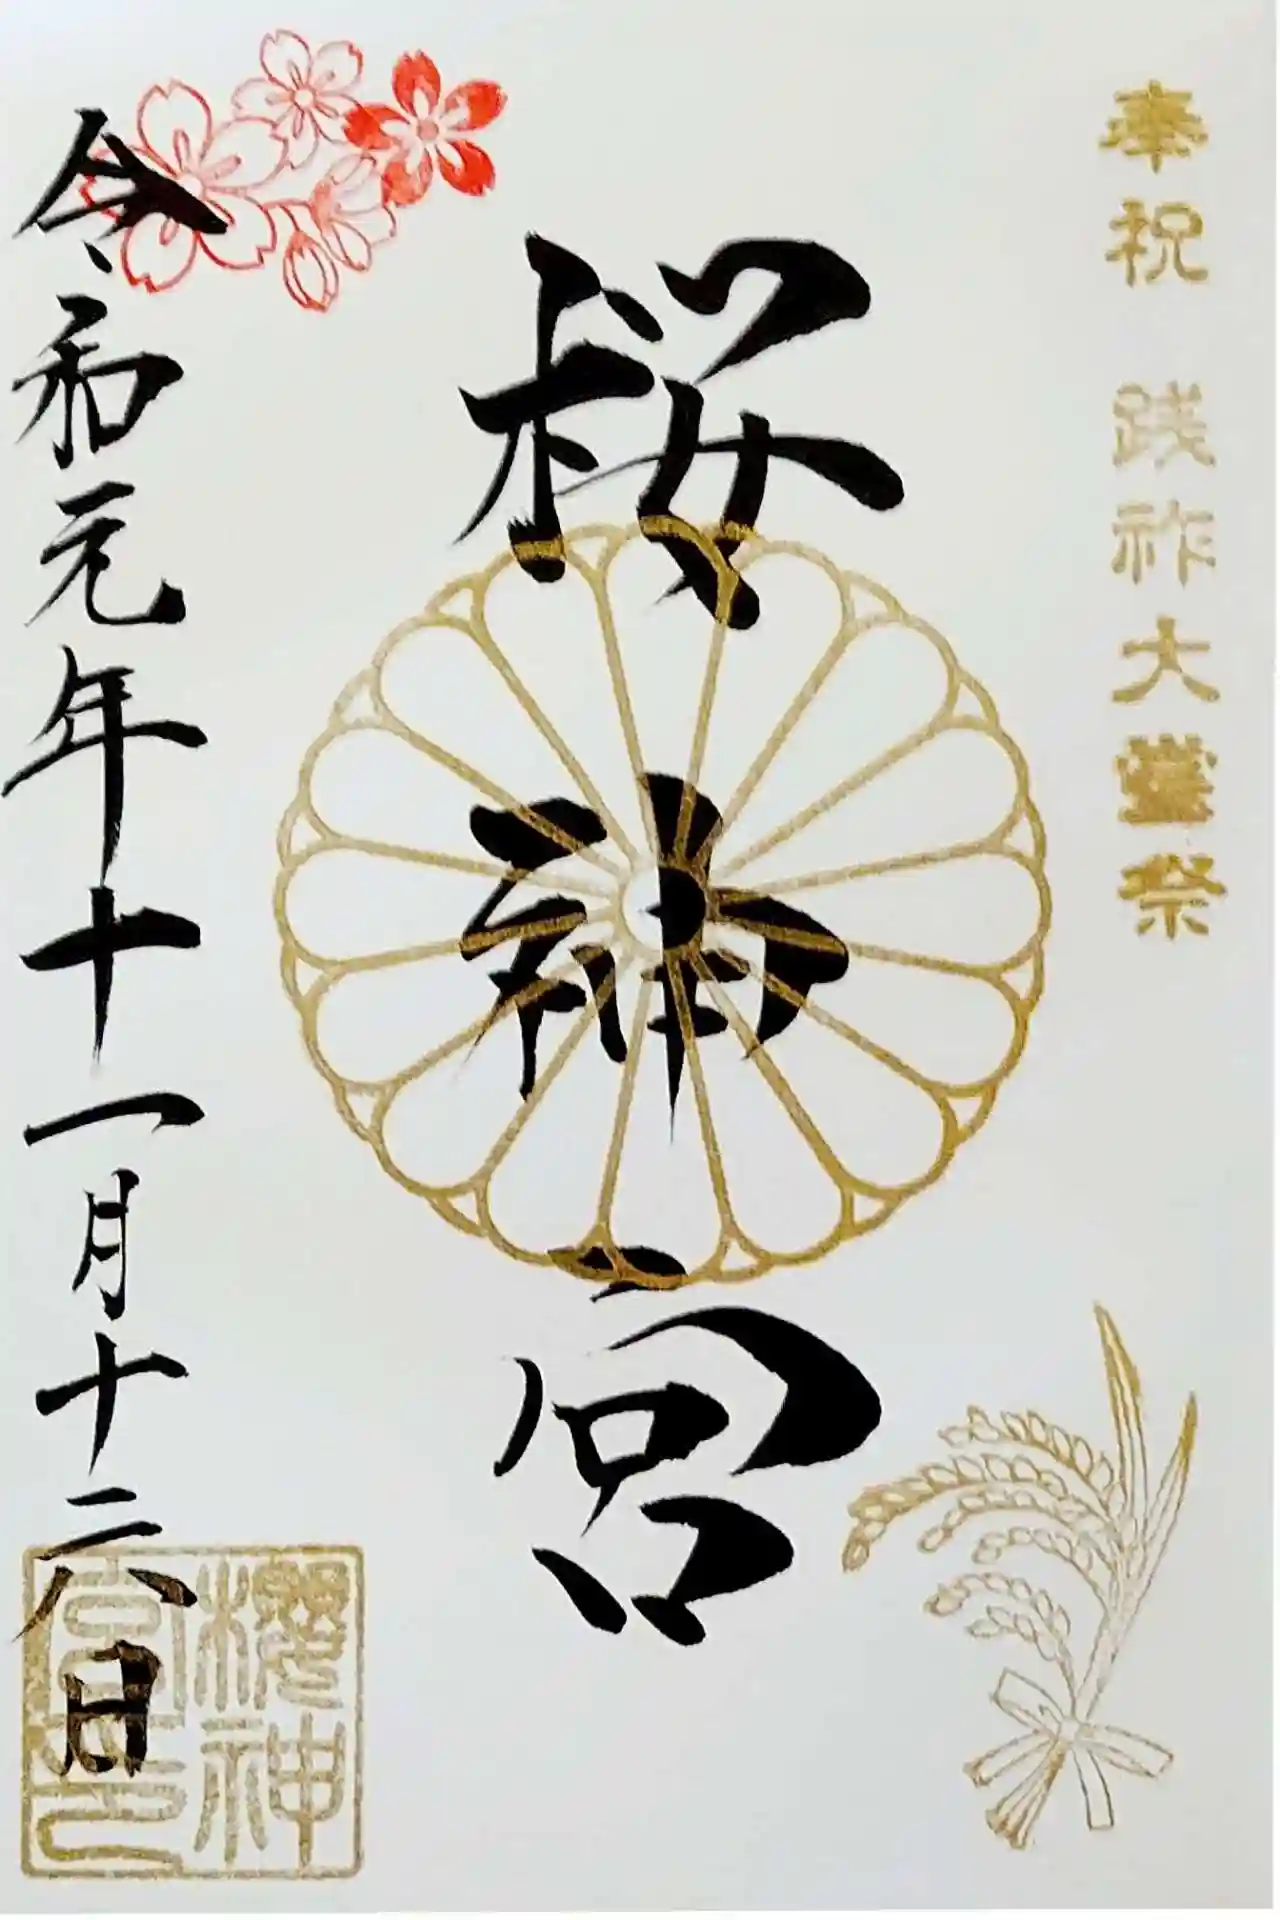 奉祝 践祚大嘗祭
桜神宮
令和元年十一月十六日
櫻神
宮印